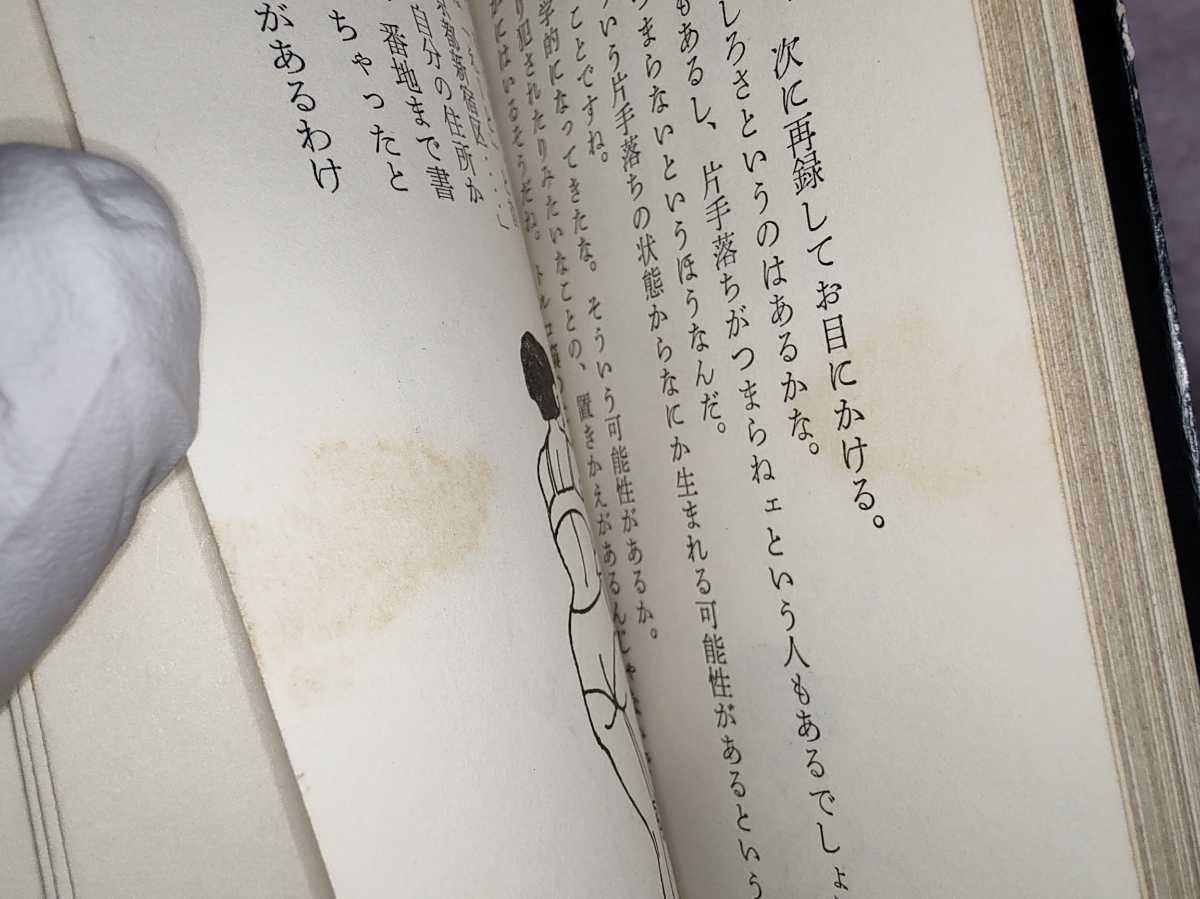 次に再録してお目にかける。
しろさというのはあるかな。
もあるし、片手落ちがつまらねェという人もあるでしょ
まらないというほうなんだ。
いう片手落ちの状態からなにか生まれる可能性があるという
ことですね。
学的になってきたな。そういう可能性があるか。
り犯されたりみたいなことの、置きかえがあるんじゃ
かにはいるそうだね。トルコ
京都新宿区……」
自分の住所か
番地まで書
ちゃったと
があるわけ